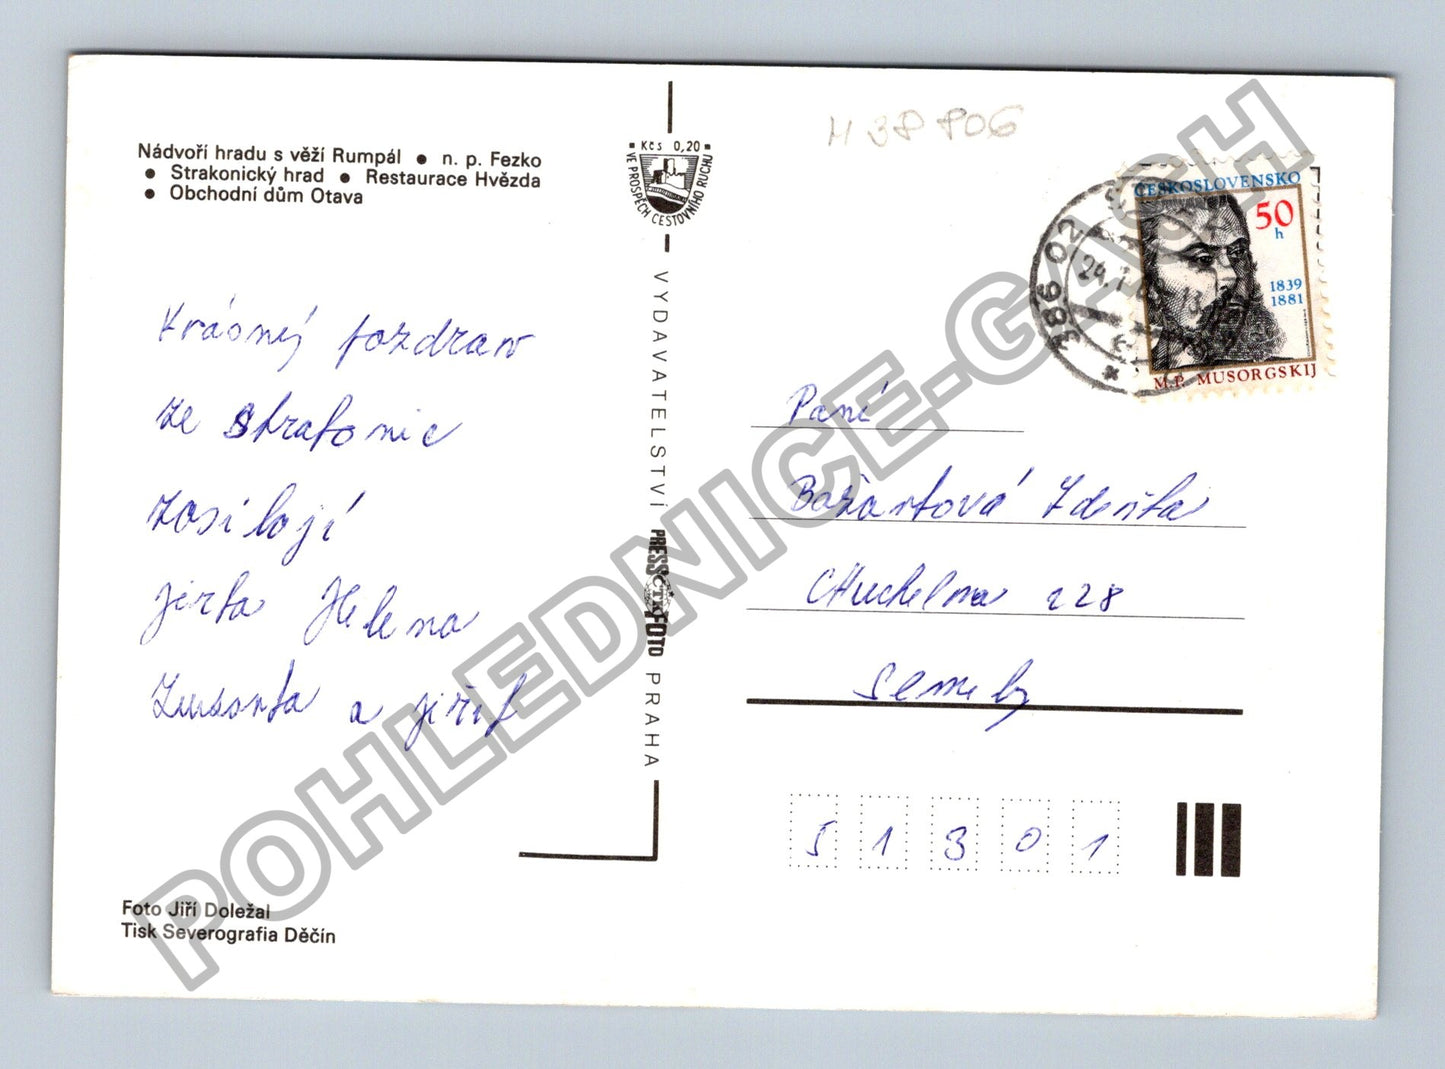 Nádvoří hradu s věží Rumpál ● n. p. Fezko
● Strakonický hrad ● Restaurace Hvězda
● Obchodní dům Otava
Krásný pozdrav
ze Strakonic
zasílají
Jirka Helena
Zuzanka a Jiřík
Foto Jiří Doležal
Tisk Severografia Děčín
Kčs 0,20
VE PROSPĚCH CESTOVNÍHO RUCHU
VYDAVATELSTVÍ PRESSFOTO PRAHA
ČTK
H 38 806
386 02
ČESKOSLOVENSKO
50
h
1839
1881
M.P. MUSORGSKIJ
Paní
Bažantová Zdeňka
Chuchelna 228
Semily
51301
POHLEDNICE-GACH